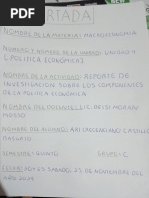 PORTADA
NOMBRE DE LA MATERIA: MACROECONOMIA
NUMERO Y NOMBRE DE LA UNIDAD: UNIDAD 4
POLITICA ECONOMICAS
NOMBRE DE LA ACTIVIDAD: REPORTE DE
INVESTIGACION SOBRE LOS COMPONENTES
DE LA POLITICA ECONOMICA
NOMBRE DEL DOCENTE: LIC. DEISI MORAN
NOMBRE DEL ALUMNO: ABI
SEMESTRE: QUINTO GRUPO: C
SABADO 23 DE NOVIEMBRE DEL
AÑO 2024